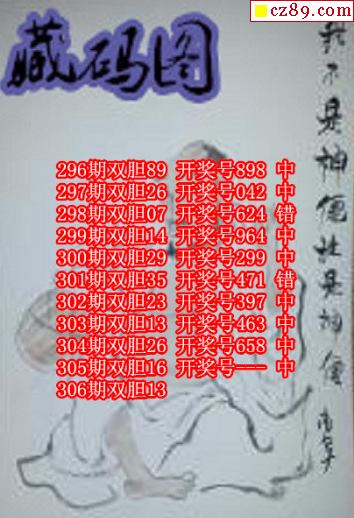 cz89.com
藏码图
296期双胆89 开奖号898 中
297期双胆26 开奖号042 中
298期双胆07 开奖号624 错
299期双胆14 开奖号964 中
300期双胆29 开奖号299 中
301期双胆35 开奖号471 错
302期双胆23 开奖号397 中
303期双胆13 开奖号463 中
304期双胆26 开奖号658 中
305期双胆16 开奖号--- 中
306期双胆13
不是神僊
是神僊